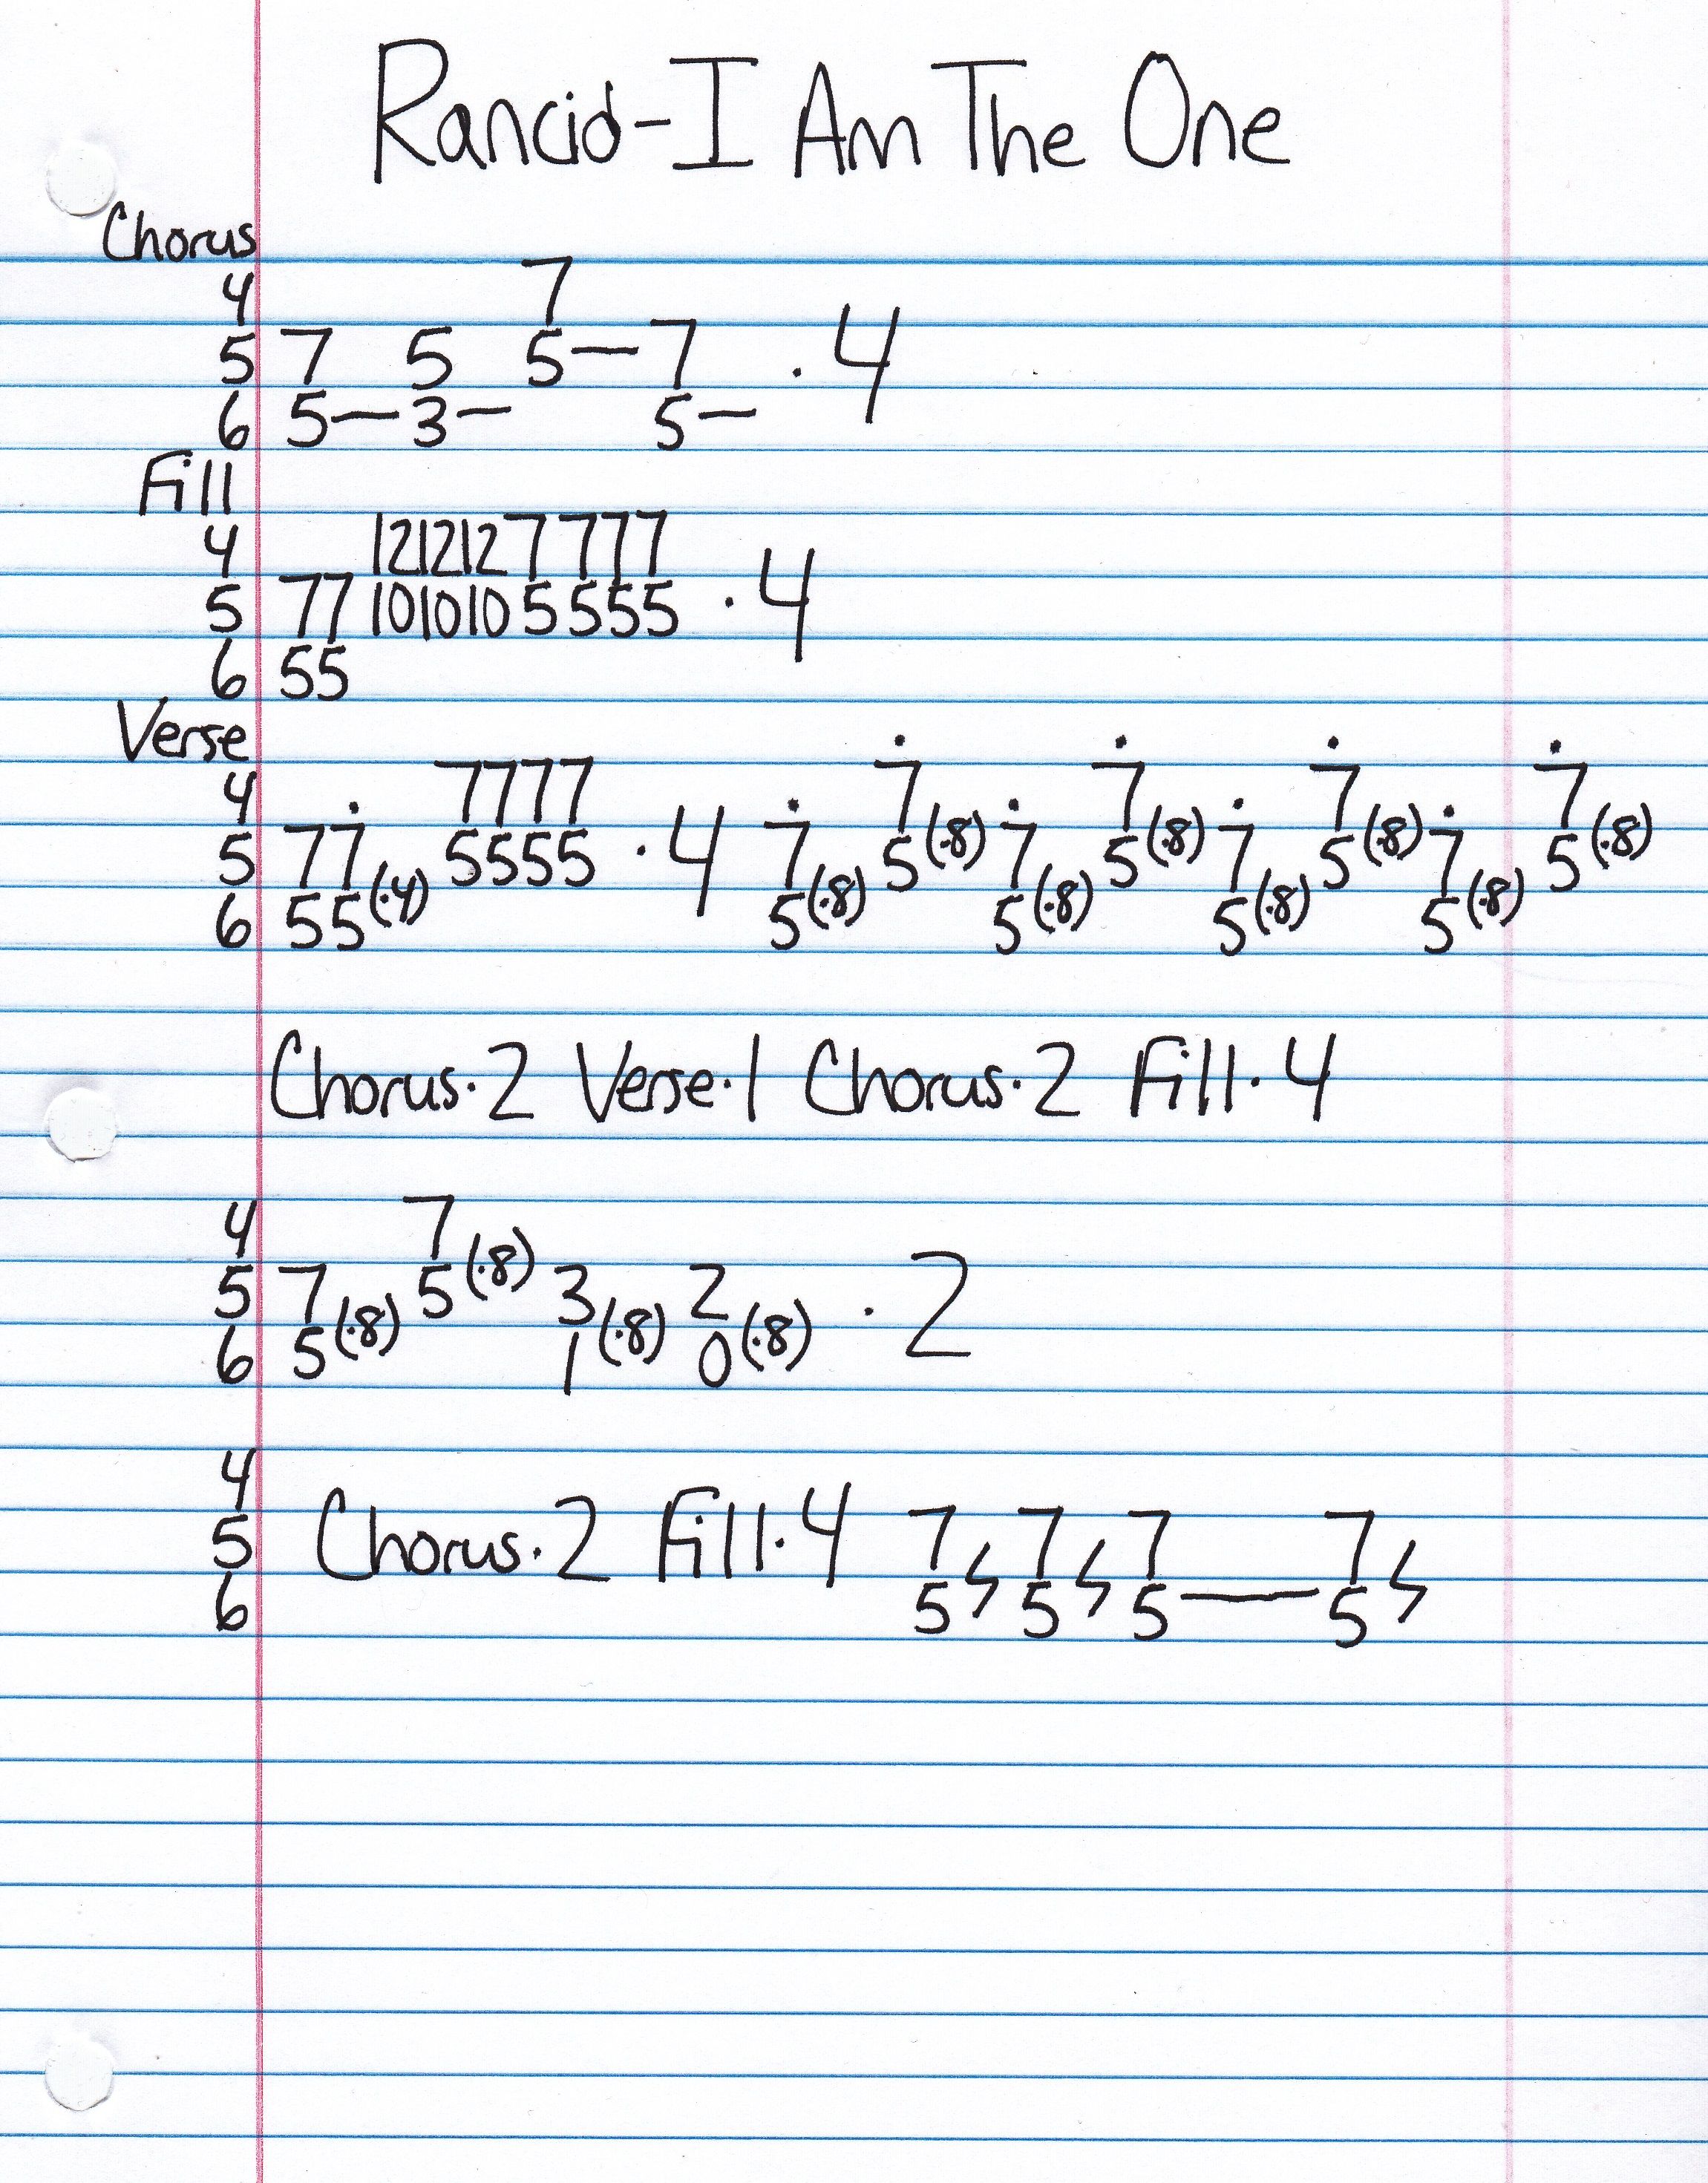 Rancid-I Am The One
Chorus
4 7
5 7 5 5—7 · 4
6 5—3— 5—
Fill
4 12 12 12 7 7 7 7
5 7 7 10 10 10 5 5 5 5 · 4
6 5 5
Verse
4 7 7 7 7 7 7 7 7
5 7 7 5 5 5 5 · 4 7 5(·8) 7 5(·8) 7 5(·8) 7 5(·8)
6 5 5(·4) 5(·8) 5(·8) 5(·8) 5(·8)
Chorus·2 Verse·1 Chorus·2 Fill·4
4 7
5 7 5(·8) 3 2 · 2
6 5(·8) 1(·8) 0(·8)
4
5 Chorus·2 Fill·4 7 7 7 7
6 5 5 5—5